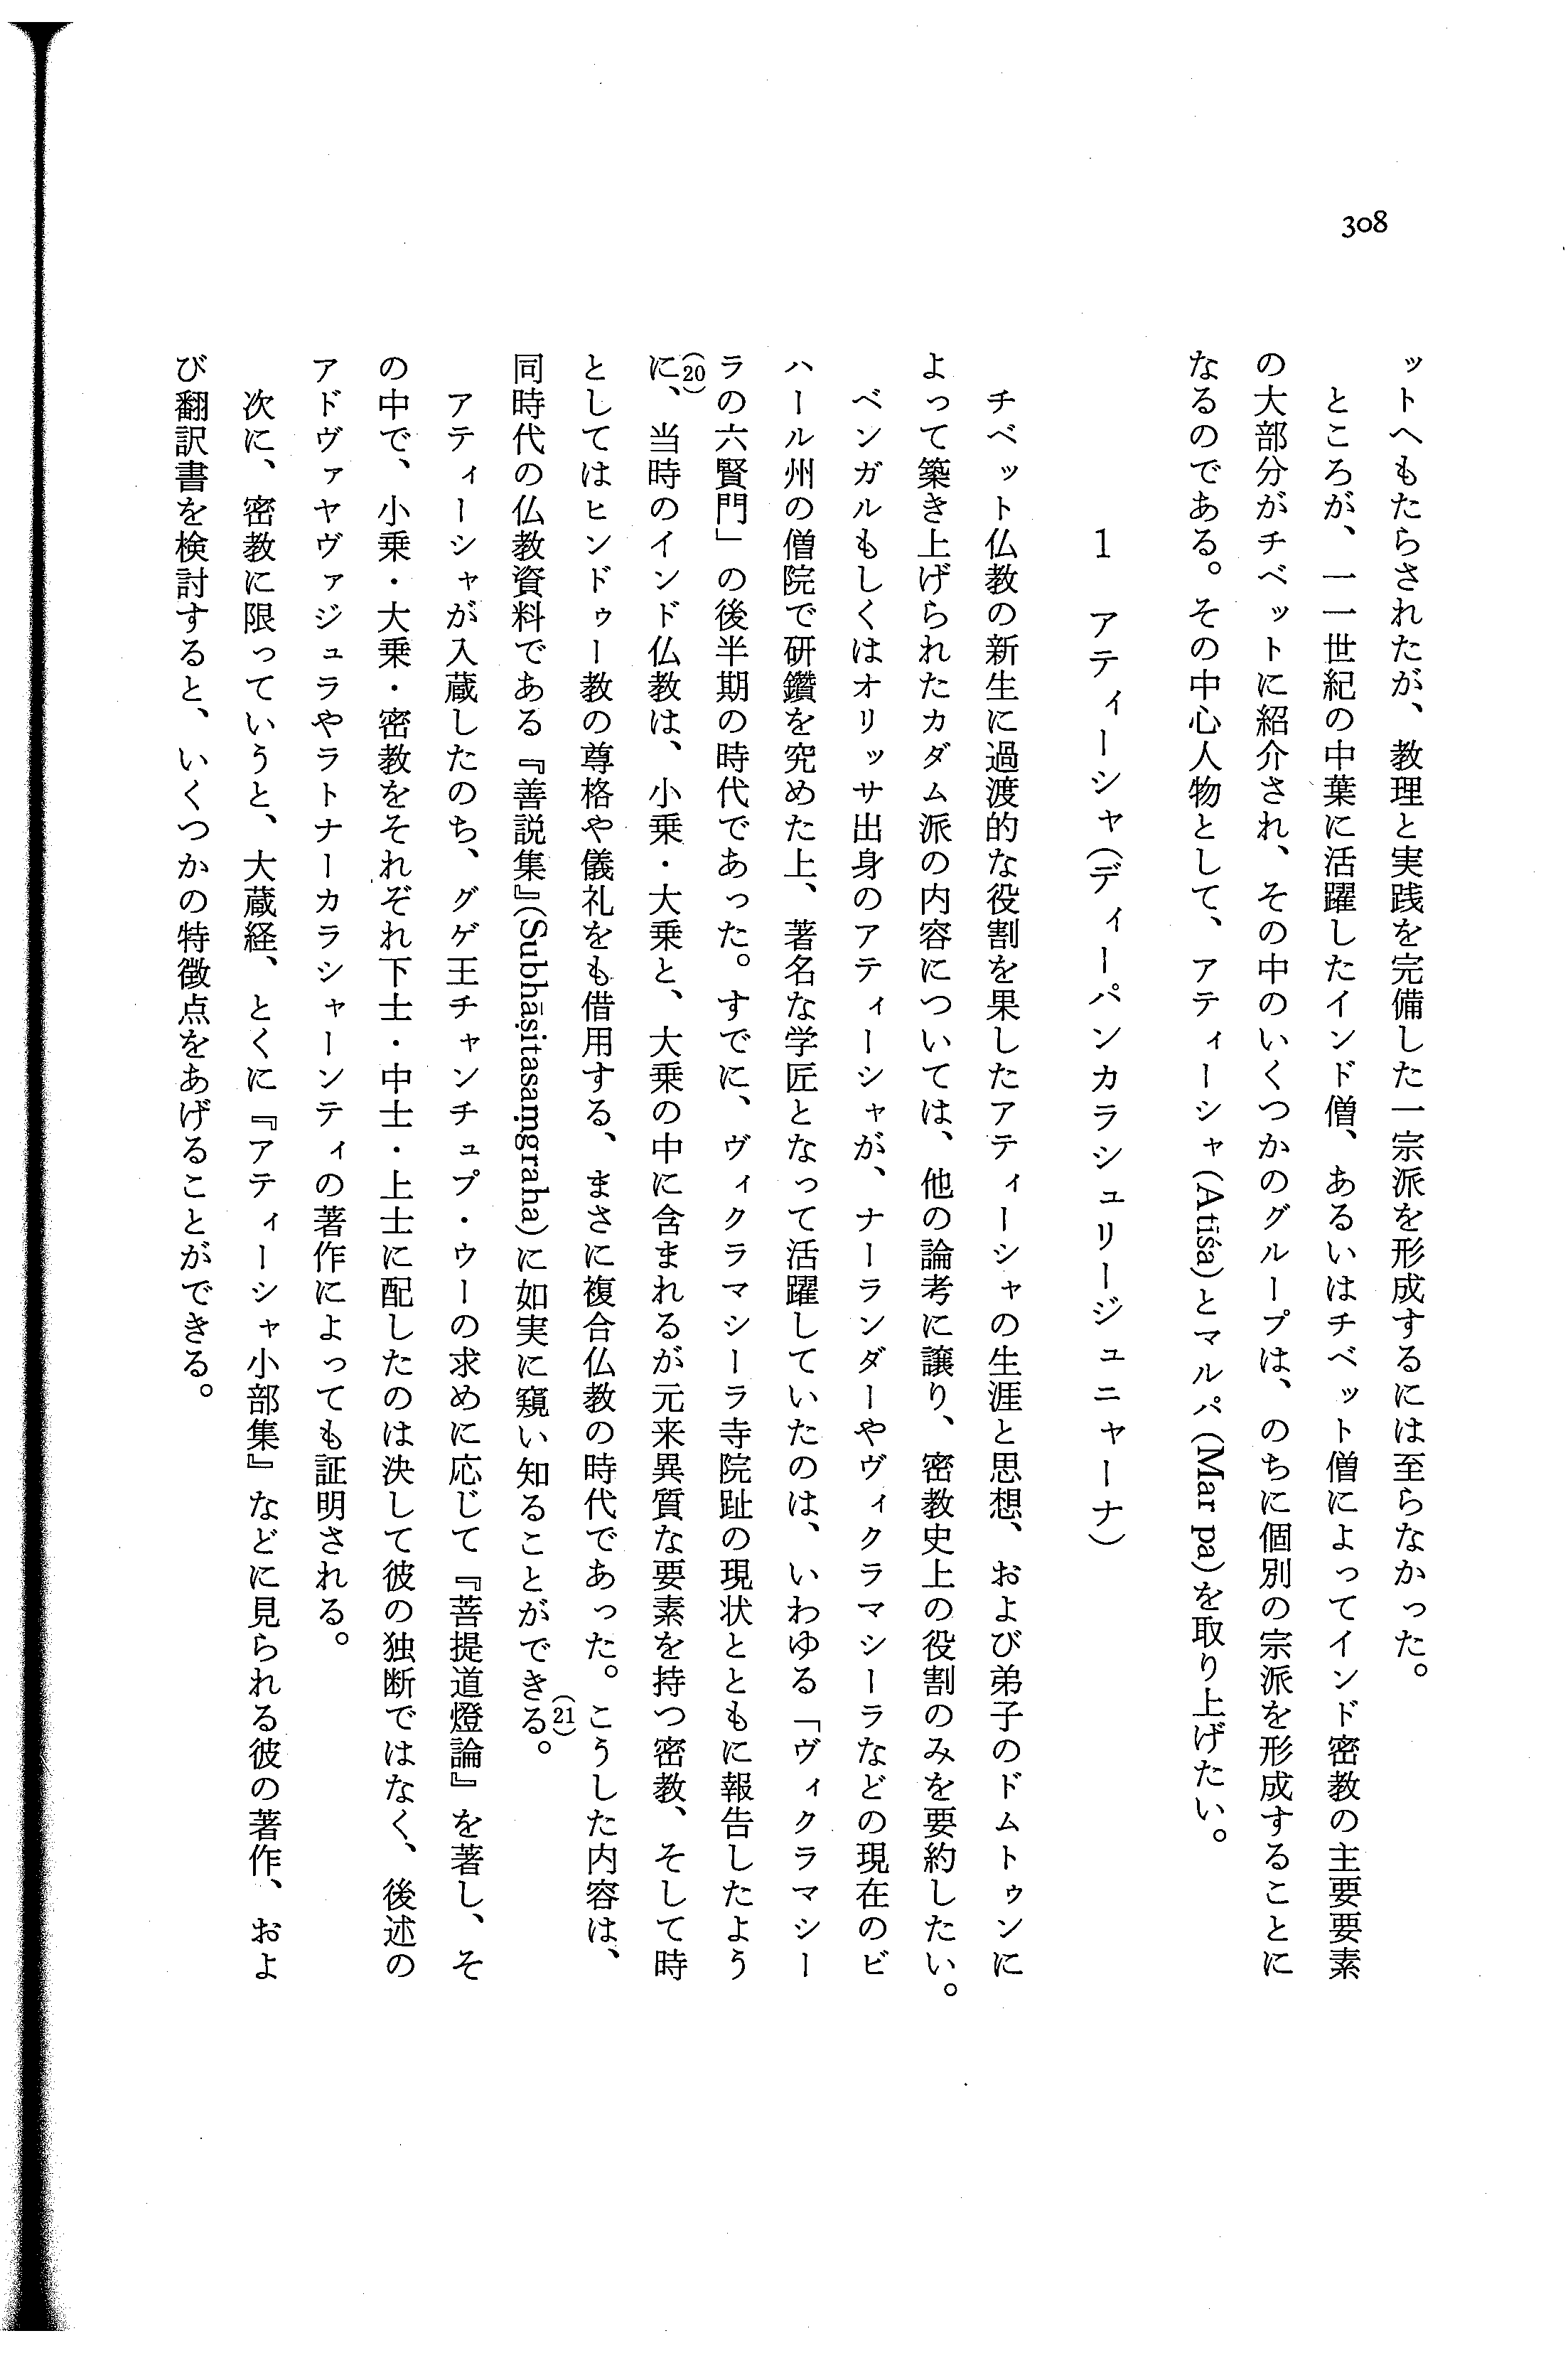 308
ットへもたらされたが、教理と実践を完備した一宗派を形成するには至らなかった。
ところが、一一世紀の中葉に活躍したインド僧、あるいはチベット僧によってインド密教の主要要素
の大部分がチベットに紹介され、その中のいくつかのグループは、のちに個別の宗派を形成することに
なるのである。その中心人物として、アティーシャ(Atiśa)とマルパ(Mar pa)を取り上げたい。
1 アティーシャ(ディーパンカラシュリージュニャーナ)
チベット仏教の新生に過渡的な役割を果したアティーシャの生涯と思想、および弟子のドムトゥンに
よって築き上げられたカダム派の内容については、他の論考に譲り、密教史上の役割のみを要約したい。
ベンガルもしくはオリッサ出身のアティーシャが、ナーランダーやヴィクラマシーラなどの現在のビ
ハール州の僧院で研鑽を究めた上、著名な学匠となって活躍していたのは、いわゆる「ヴィクラマシー
ラの六賢門」の後半期の時代であった。すでに、ヴィクラマシーラ寺院趾の現状とともに報告したよう
に、(20)当時のインド仏教は、小乗・大乗と、大乗の中に含まれるが元来異質な要素を持つ密教、そして時
としてはヒンドゥー教の尊格や儀礼をも借用する、まさに複合仏教の時代であった。こうした内容は、
同時代の仏教資料である『善説集』(Subhāṣitasaṃgraha)に如実に窺い知ることができる。(21)
アティーシャが入蔵したのち、グゲ王チャンチュプ・ウーの求めに応じて『菩提道燈論』を著し、そ
の中で、小乗・大乗・密教をそれぞれ下士・中士・上士に配したのは決して彼の独断ではなく、後述の
アドヴァヤヴァジュラやラトナーカラシャーンティの著作によっても証明される。
次に、密教に限っていうと、大蔵経、とくに『アティーシャ小部集』などに見られる彼の著作、およ
び翻訳書を検討すると、いくつかの特徴点をあげることができる。